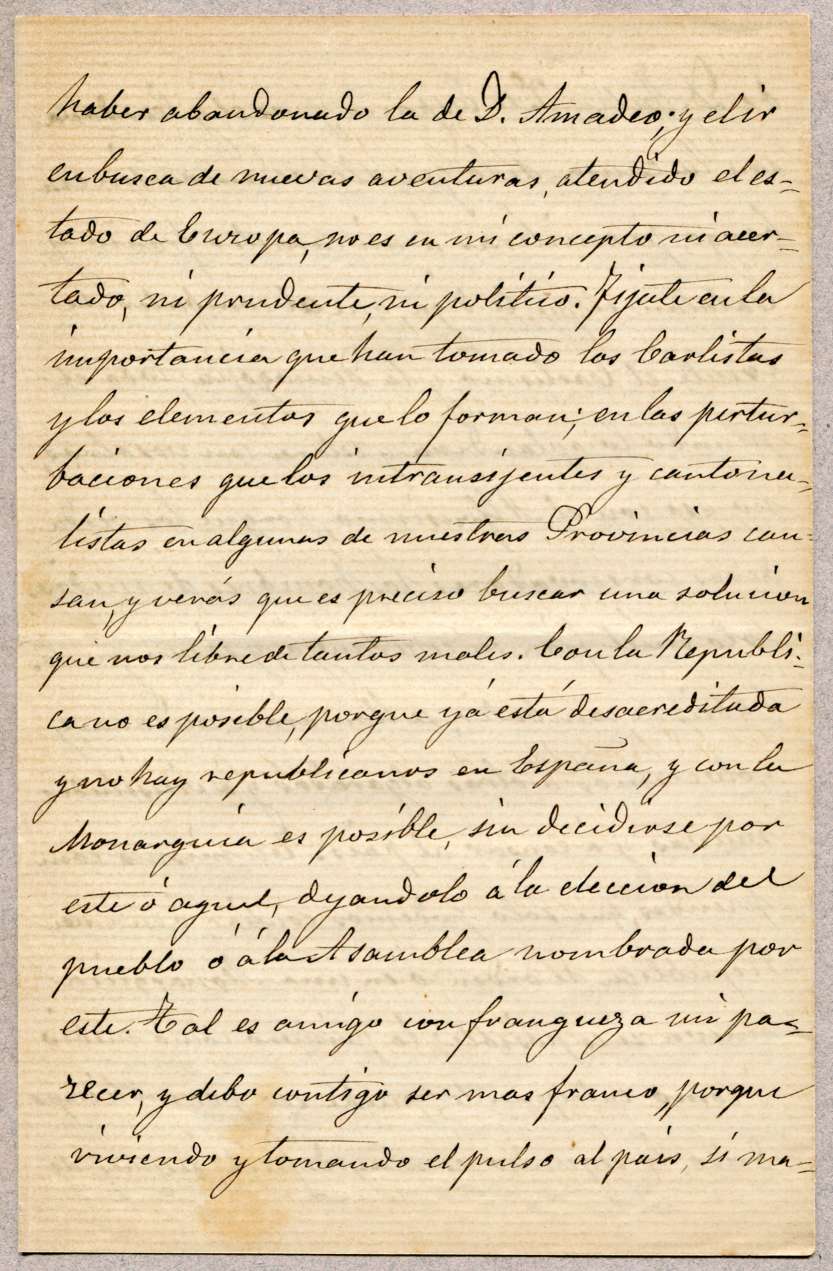 haber abandonado la de D. Amadeo; y el ir
en busca de nuevas aventuras, atendido el es=
tado de Europa, no es en mi concepto ni acer=
tado, ni prudente, ni politico. Fijate en la
importancia que han tomado los Carlistas
y los elementos que lo forman; en las pertur=
baciones que los intransijentes y cantona=
listas en algunas de nuestras Provincias cau=
san, y verás que es preciso buscar una solucion
que nos libre de tantos males. Con la Republi=
ca no es posible, porque yá está desacreditada
y no hay republicanos en España, y con la
Monarquia es posible, sin decidirse por
este ó aquel, dejandolo á la eleccion del
pueblo ó á la Asamblea nombrada por
este. Tal es amigo con franqueza mi pa=
recer, y debo contigo ser mas franco, porque
viviendo y tomando el pulso al pais, si ma=